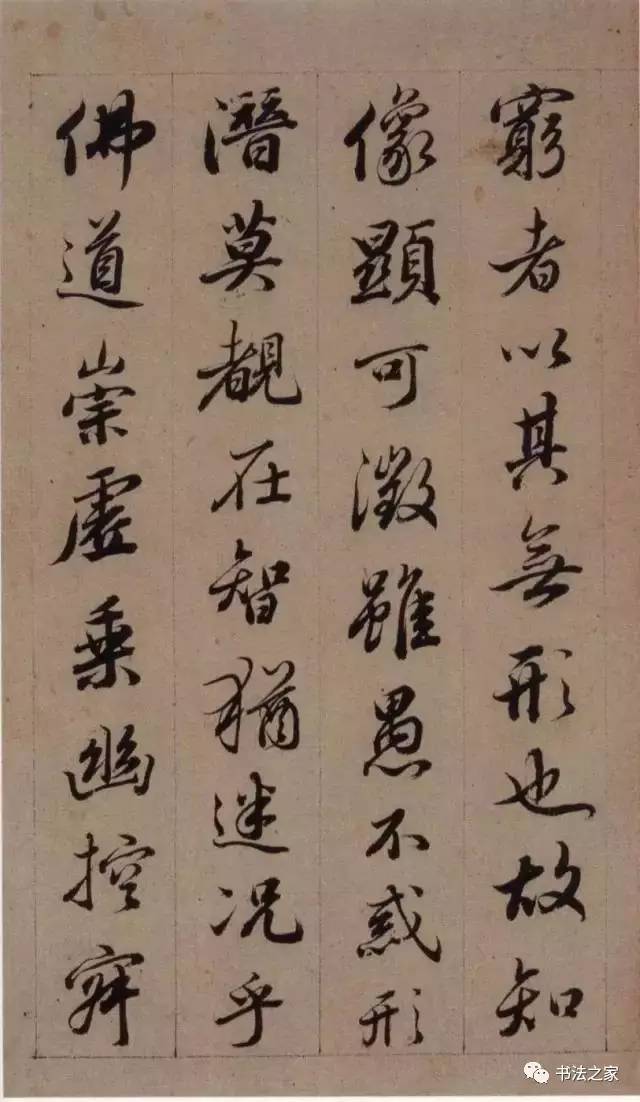 窮者以其無形也故知
像顯可徵雖愚不惑形
潛莫覩在智猶迷況乎
佛道崇虛乗幽控寂
书法之家